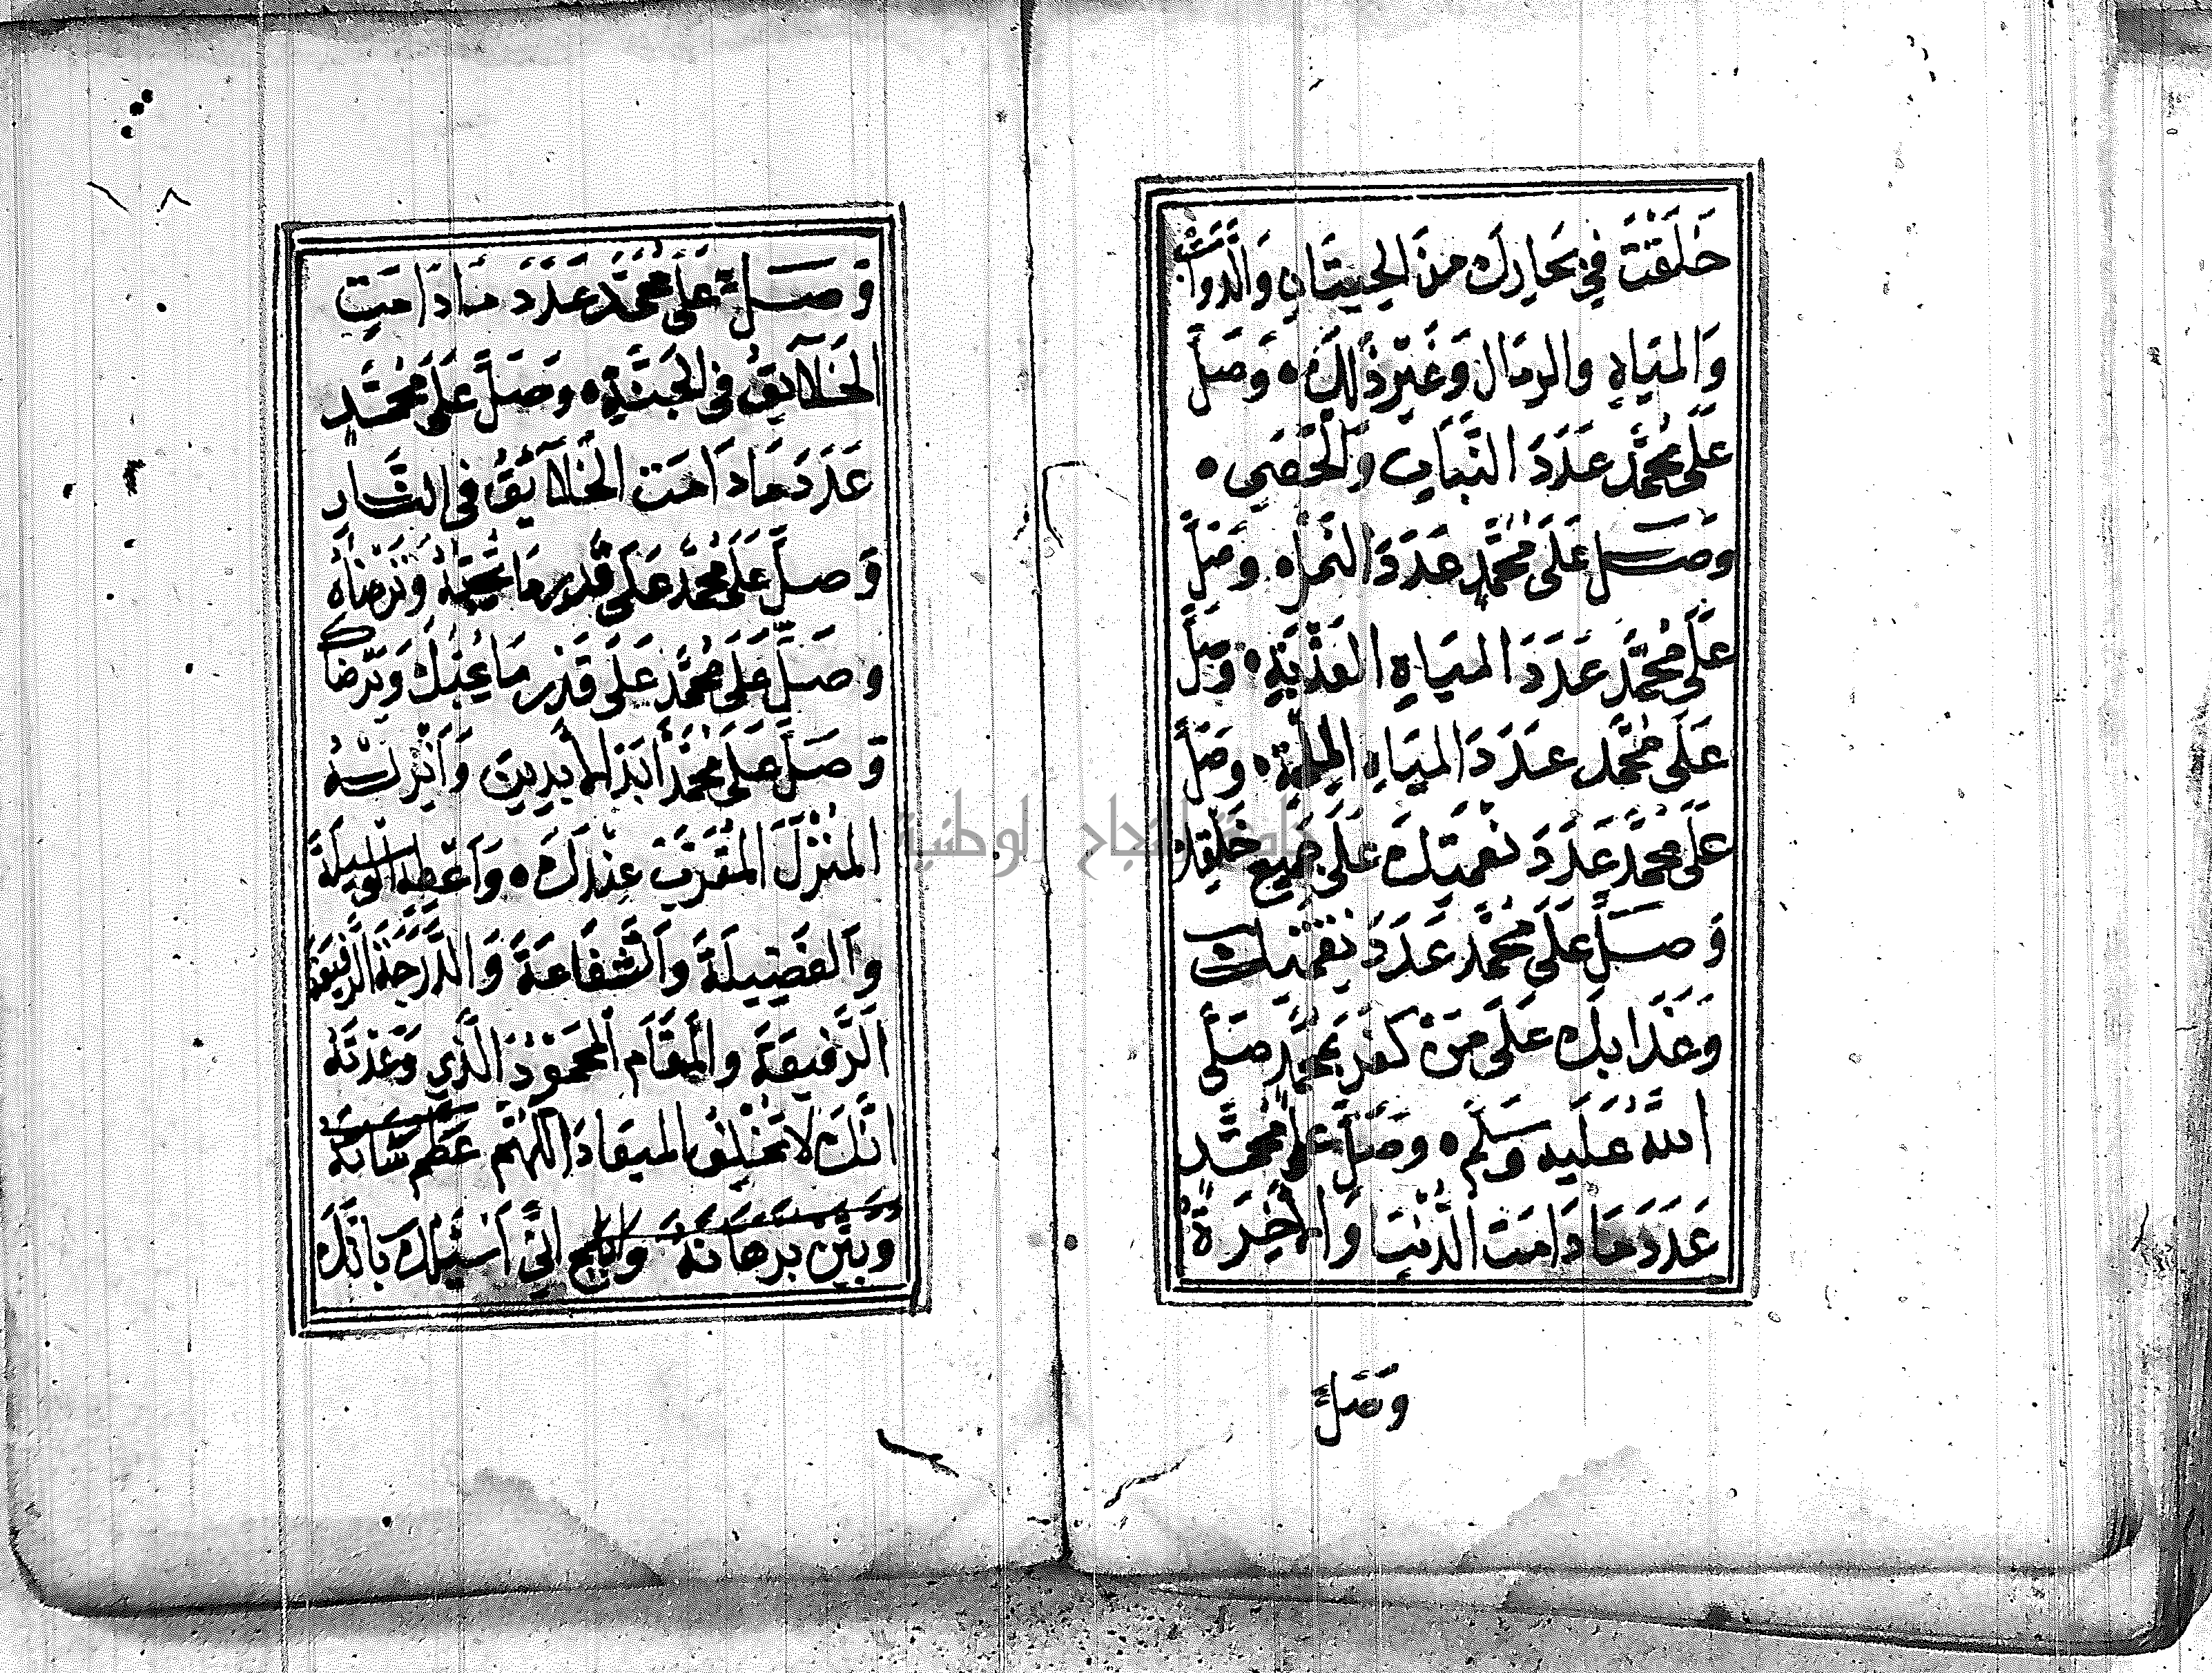 خَلَقْتَ فِي بِحَارِكَ مِنَ الْحِيتَانِ وَالدَّوَابِّ
وَالْمِيَاهِ وَالرِّمَالِ وَغَيْرِ ذَلِكَ وَصَلِّ
عَلَى مُحَمَّدٍ عَدَدَ النَّبَاتِ وَالْحَصَى
وَصَلِّ عَلَى مُحَمَّدٍ عَدَدَ النَّمْلِ وَصَلِّ
عَلَى مُحَمَّدٍ عَدَدَ الْمِيَاهِ الْعَذْبَةِ وَصَلِّ
عَلَى مُحَمَّدٍ عَدَدَ الْمِيَاهِ الْمِلْحَةِ وَصَلِّ
عَلَى مُحَمَّدٍ عَدَدَ نِعْمَتِكَ عَلَى جَمِيعِ خَلْقِكَ
وَصَلِّ عَلَى مُحَمَّدٍ عَدَدَ نِقْمَتِكَ
وَعَذَابِكَ عَلَى مَنْ كَفَرَ بِمُحَمَّدٍ صَلَّى
اللهُ عَلَيْهِ وَسَلَّمَ وَصَلِّ عَلَى مُحَمَّدٍ
عَدَدَ مَا دَامَتِ الدُّنْيَا وَالْآخِرَةُ
وَصَلِّ
وَصَلِّ عَلَى مُحَمَّدٍ عَدَدَ مَا دَامَتِ
الْخَلَائِقُ فِي الْجَنَّةِ وَصَلِّ عَلَى مُحَمَّدٍ
عَدَدَ مَا دَامَتِ الْخَلَائِقُ فِي النَّارِ
وَصَلِّ عَلَى مُحَمَّدٍ عَلَى قَدْرِ مَا تُحِبُّهُ وَتَرْضَاهُ
وَصَلِّ عَلَى مُحَمَّدٍ عَلَى قَدْرِ مَا يُحِبُّكَ وَيَرْضَاكَ
وَصَلِّ عَلَى مُحَمَّدٍ أَبَدَ الْآبِدِينَ وَأَنْزِلْهُ
الْمُنْزَلَ الْمُقَرَّبَ عِنْدَكَ وَأَعْطِهِ الْوَسِيلَةَ
وَالْفَضِيلَةَ وَالشَّفَاعَةَ وَالدَّرَجَةَ الرَّفِيعَةَ
وَالْمَقَامَ الْمَحْمُودَ الَّذِي وَعَدْتَهُ
إِنَّكَ لَا تُخْلِفُ الْمِيعَادَ اللَّهُمَّ عَظِّمْ شَانَهُ
وَبَيِّنْ بُرْهَانَهُ وَأَبْلِجْ إِنِّي أَسْئَلُكَ بِأَنَّكَ
جامعة النجاح الوطنية